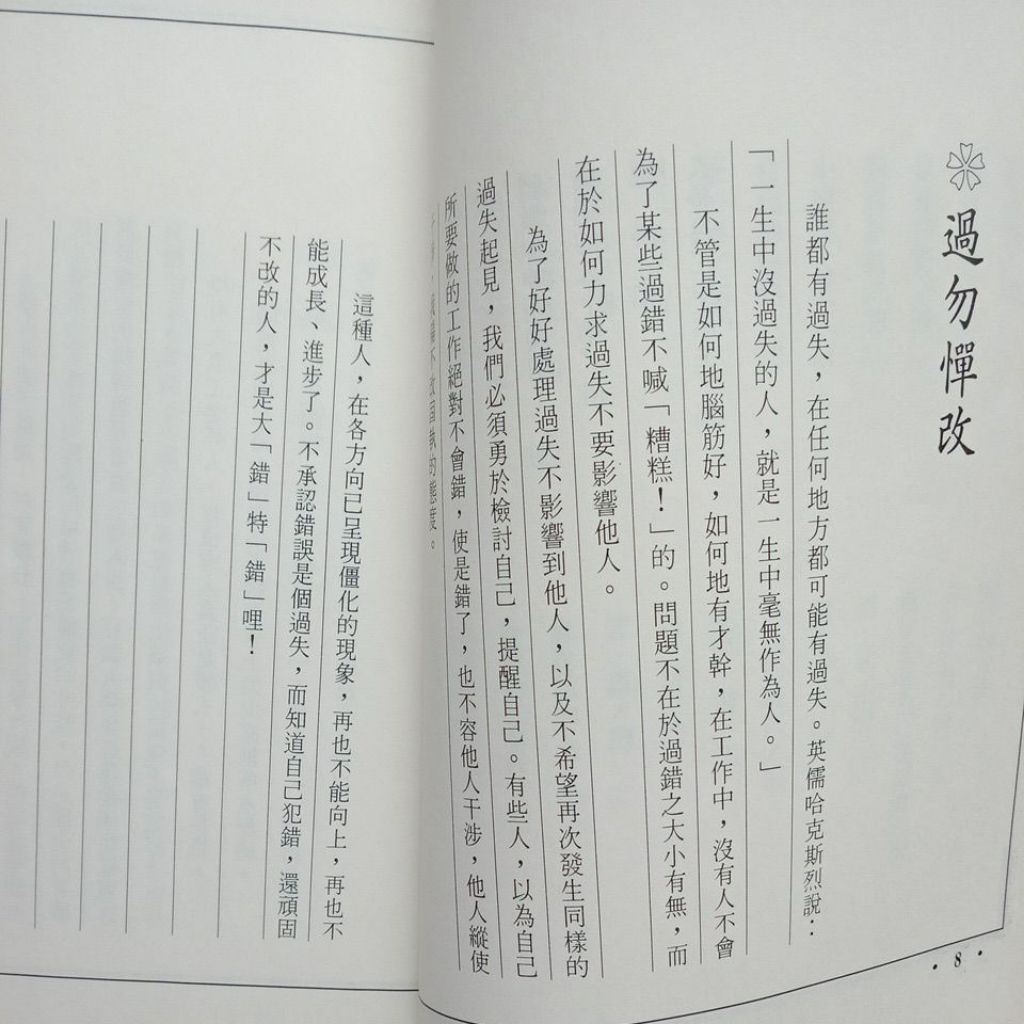 過勿憚改
誰都有過失，在任何地方都可能有過失。英儒哈克斯烈說：
「一生中沒過失的人，就是一生中毫無作為人。」
不管是如何地腦筋好，如何地有才幹，在工作中，沒有人不會
為了某些過錯不喊「糟糕！」的。問題不在於過錯之大小有無，而
在於如何力求過失不要影響他人。
為了好好處理過失不影響到他人，以及不希望再次發生同樣的
過失起見，我們必須勇於檢討自己，提醒自己。有些人，以為自己
所要做的工作絕對不會錯，使是錯了，也不容他人干涉，他人縱使
固執的態度。
8
這種人，在各方向已呈現僵化的現象，再也不能向上，再也不
能成長、進步了。不承認錯誤是個過失，而知道自己犯錯，還頑固
不改的人，才是大「錯」特「錯」哩！